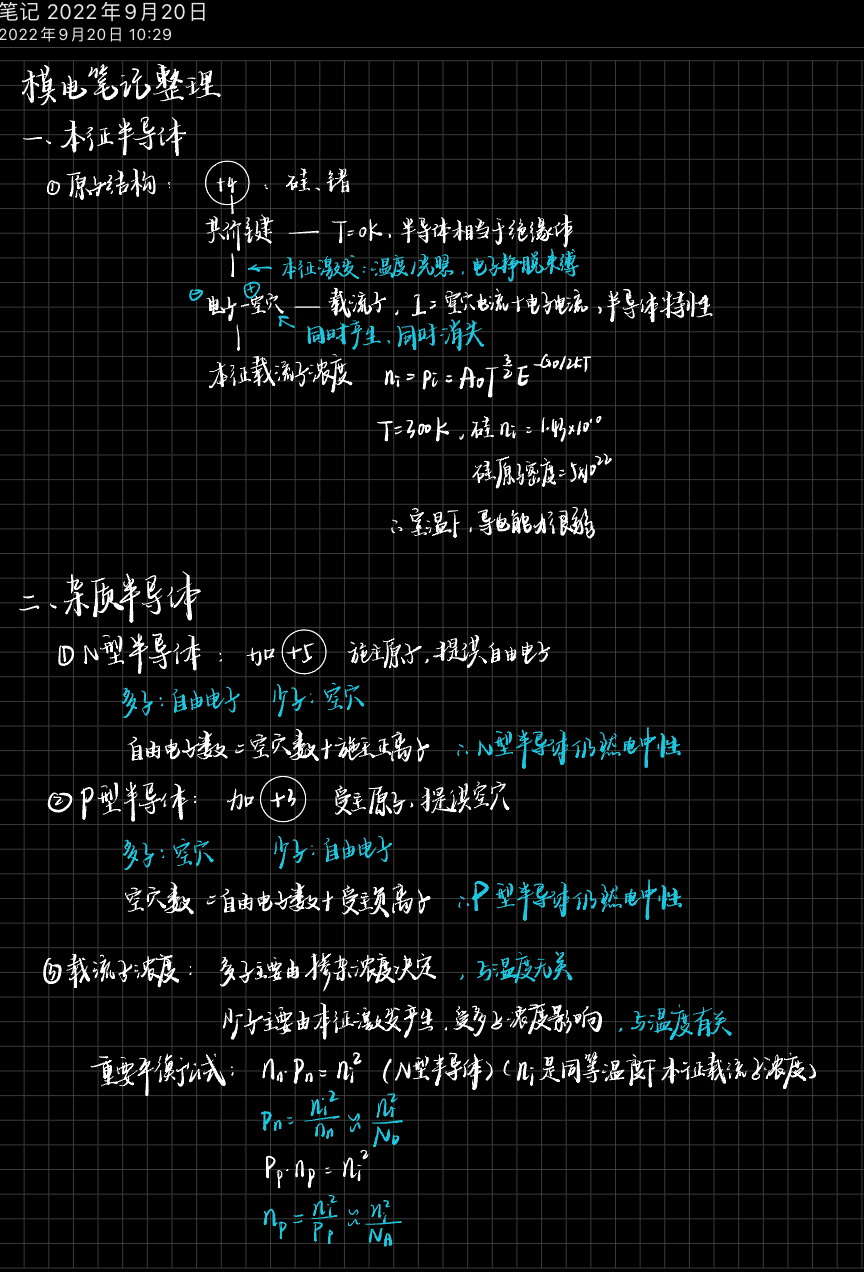 笔记 2022年9月20日
2022年9月20日 10:29
模电笔记整理
一、本征半导体
① 原子结构： +4 ：硅、锗
共价键 — T=0K，半导体相当于绝缘体
← 本征激发：温度/光照，电子挣脱束缚
⊖ ⊕
电子-空穴 — 载流子，I=空穴电流+电子电流，半导体特性
↖ 同时产生、同时消失
本征载流子浓度 nᵢ=pᵢ=A₀T^{3/2}E^{-EG0/2kT}
T=300K，硅nᵢ=1.43×10¹⁰
硅原子密度=5×10²²
∴室温下，导电能力很弱
二、杂质半导体
① N型半导体： 加 +5 施主原子，提供自由电子
多子：自由电子 少子：空穴
自由电子数=空穴数+施主正离子 ∴N型半导体仍然电中性
② P型半导体： 加 +3 受主原子，提供空穴
多子：空穴 少子：自由电子
空穴数=自由电子数+受主负离子 ∴P型半导体仍然电中性
③ 载流子浓度： 多子主要由掺杂浓度决定，与温度无关
少子主要由本征激发产生，受多子浓度影响，与温度有关
重要平衡公式： nₙ·pₙ=nᵢ² (N型半导体) (nᵢ是同等温度下本征载流子浓度)
pₙ=nᵢ²/nₙ≈nᵢ²/N_D
Pₚ·nₚ=nᵢ²
nₚ=nᵢ²/Pₚ≈nᵢ²/N_A